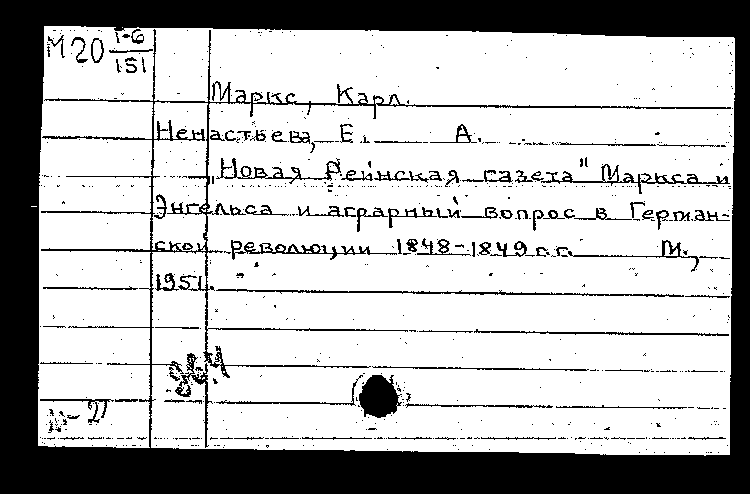 М20 Г-6
151
Маркс, Карл.
Ненастьева, Е. А.
„Новая Рейнская газета" Маркса и
Энгельса и аграрный вопрос в Герман-
ской революции 1848-1849 г.г. М.,
1951.